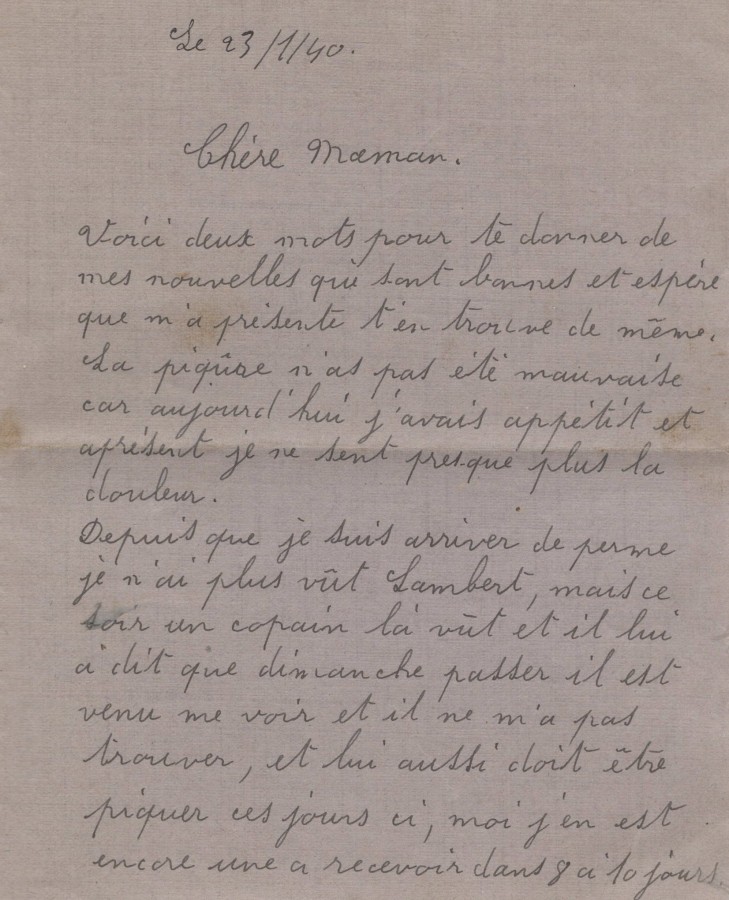 Le 23/1/40.
Chére Maman.
Voici deux mots pour te donner de
mes nouvelles qui sont bonnes et espére
que m'a présente t'en trouve de même.
La piqûre n'as pas été mauvaise
car aujourd'hui j'avais appétit et
aprésent je ne sent presque plus la
douleur.
Depuis que je suis arriver de perme
je n'ai plus vût Lambert, mais ce
soir un copain là vût et il lui
a dit que dimanche passer il est
venu me voir et il ne m'a pas
trouver, et lui aussi doit être
piquer ces jours ci, moi j'en est
encore une a recevoir dans 8 a 10 jours.